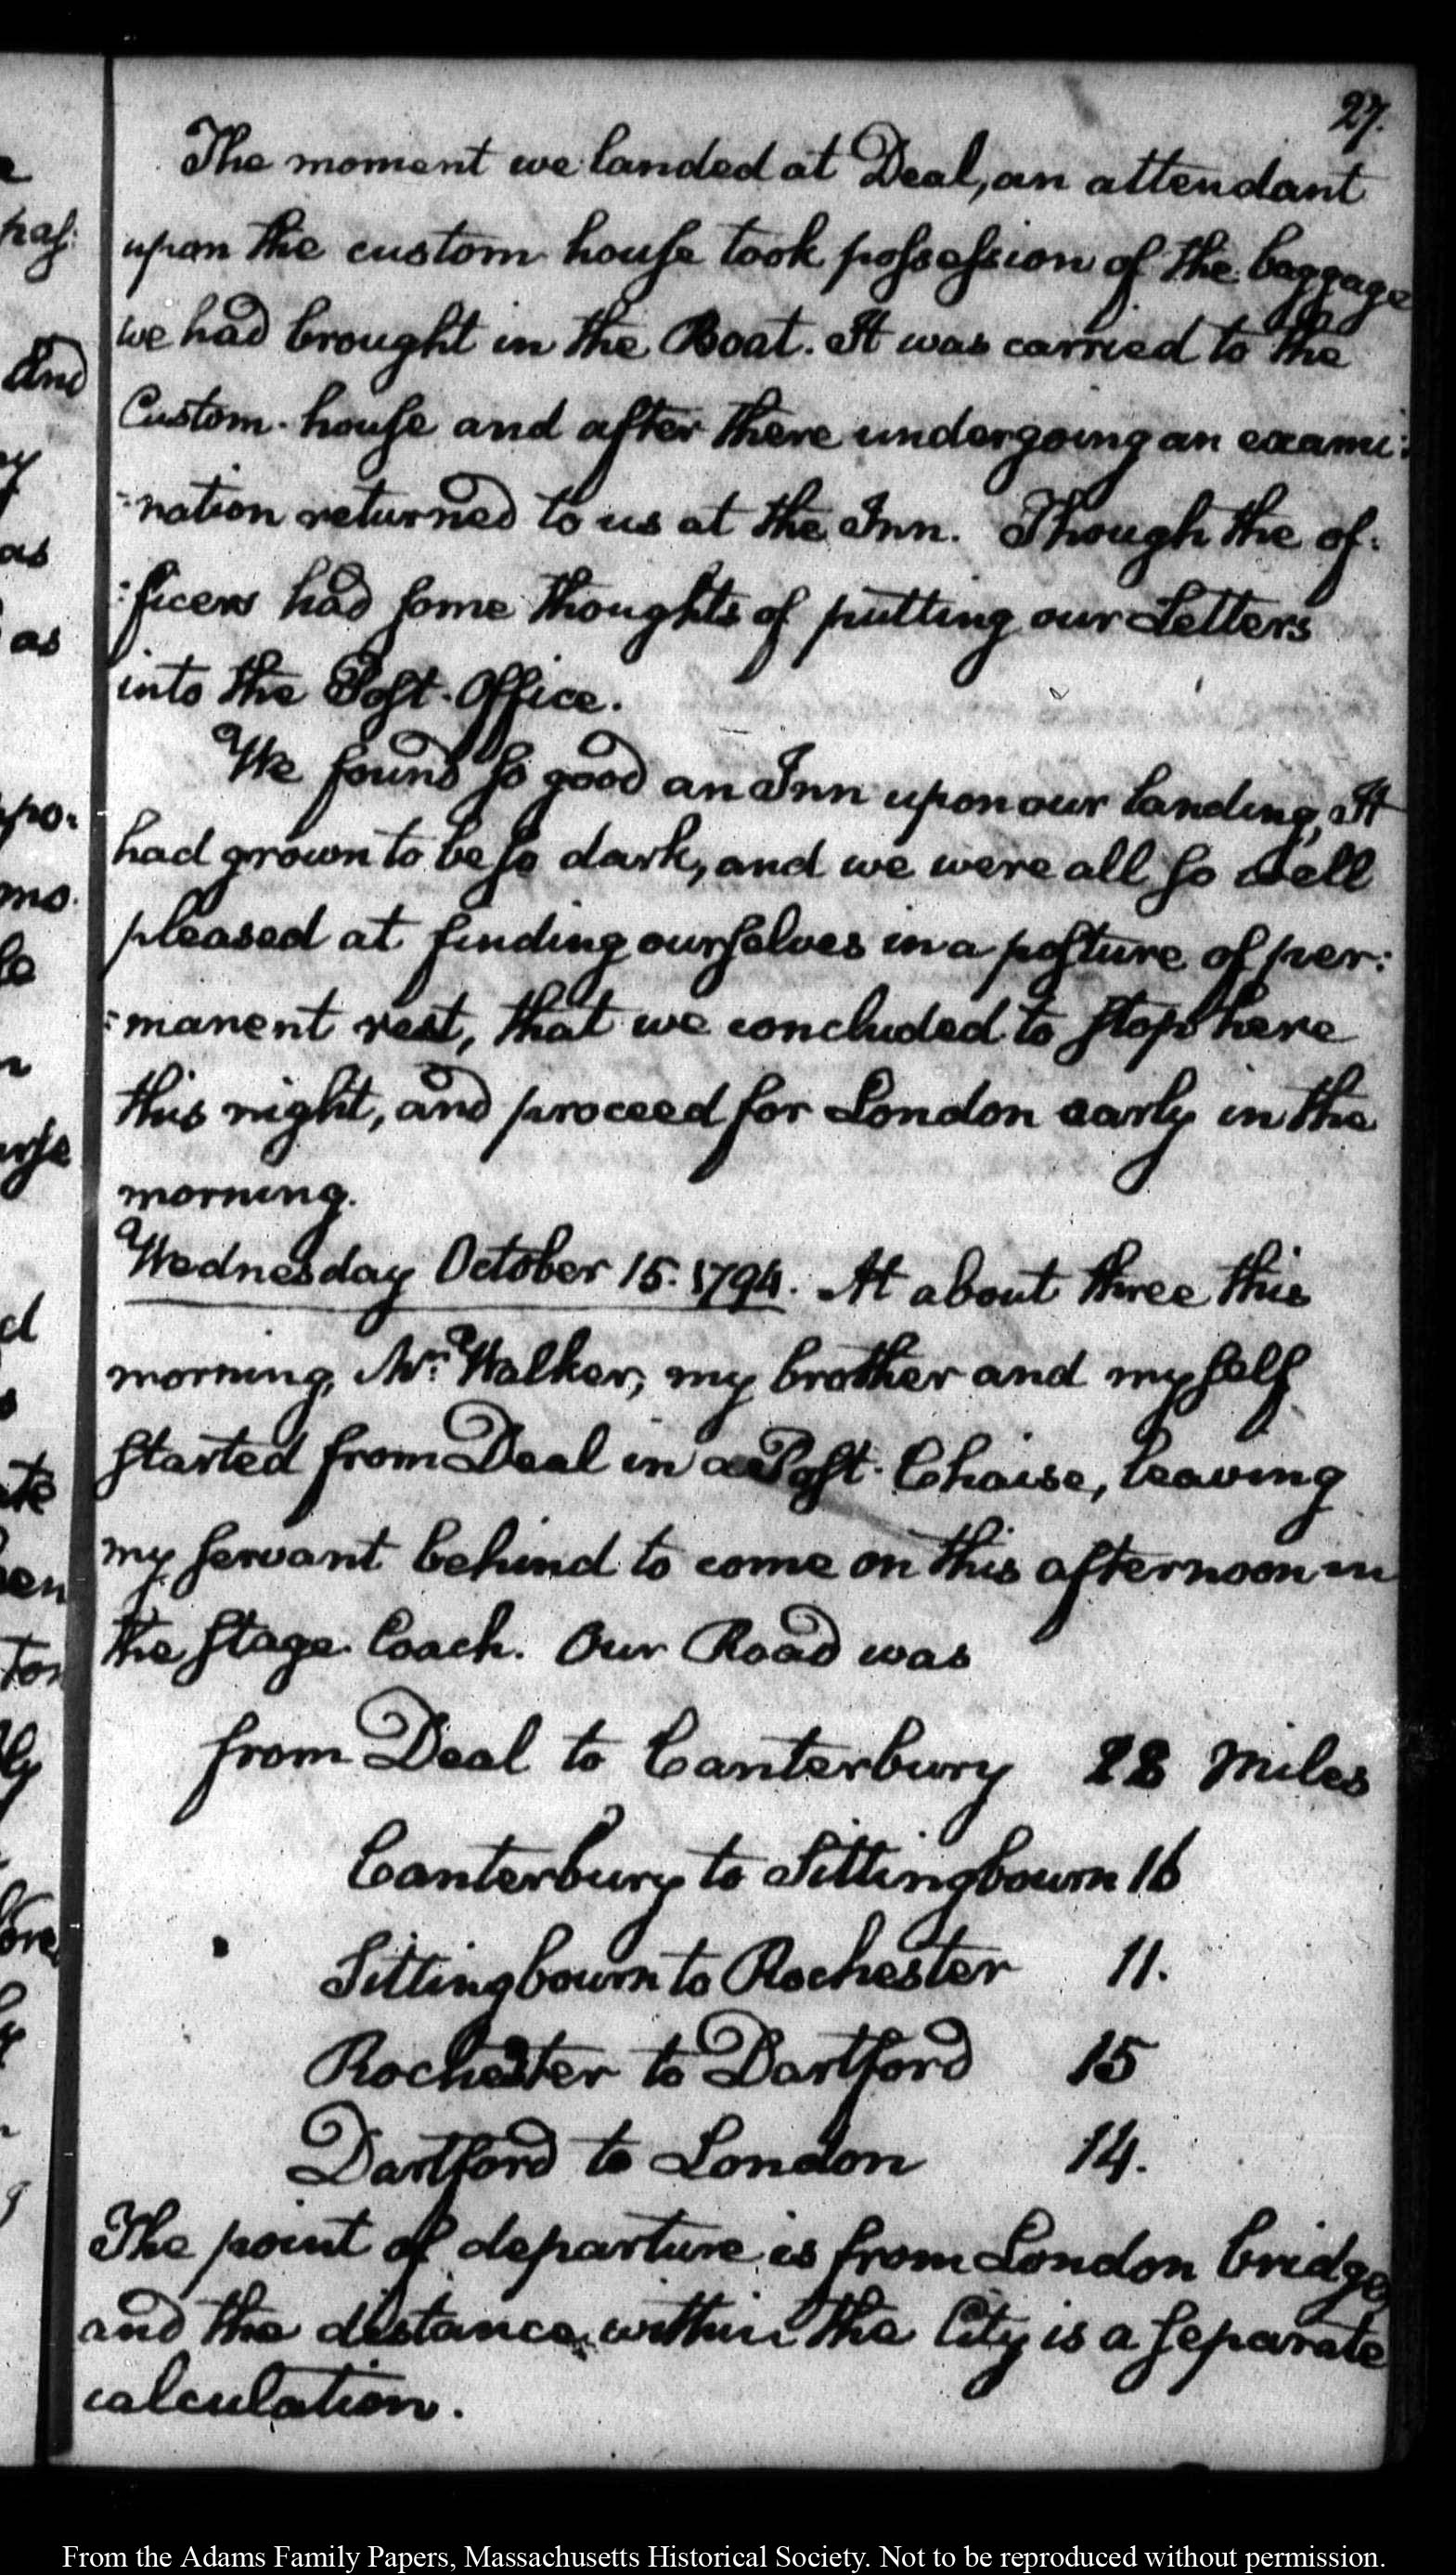 27.
The moment we landed at Deal, an attendant
upon the custom house took possession of the baggage
we had brought in the Boat. It was carried to the
Custom-house and after there undergoing an exami:
:nation returned to us at the Inn. Though the of:
:ficers had some thoughts of putting our Letters
into the Post-Office.
We found so good an Inn upon our landing, It
had grown to be so dark, and we were all so well
pleased at finding ourselves in a posture of per:
:manent rest, that we concluded to stop here
this night, and proceed for London early in the
morning.
Wednesday October 15. 1794. At about three this
morning, Mr: Walker, my brother and myself
started from Deal in a Post-Chaise, leaving
my servant behind to come on this afternoon in
the stage-Coach. Our Road was
from Deal to Canterbury 18 miles
Canterbury to Sittingbourn 16
Sittingbourn to Rochester 11.
Rochester to Dartford 15
Dartford to London 14.
The point of departure is from London bridge
and the distance within the City is a separate
calculation.
From the Adams Family Papers, Massachusetts Historical Society. Not to be reproduced without permission.